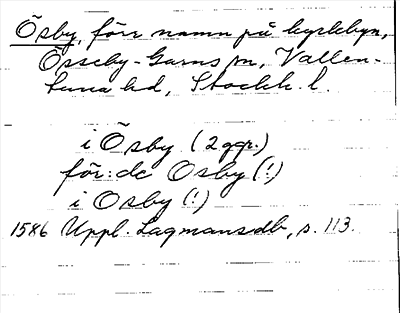 Ösby, förr namn på kyrkbyn,
Össeby-Garns sn, Vallen-
tuna hd, Stockh. l.
i Ösby (2 ggr.)
för: de Osby (!)
i Osby (!)
1586 Uppl. Lagmansdb, s. 113.